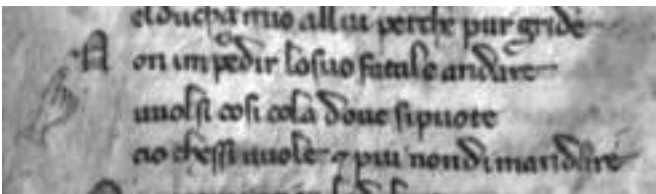 elduca mio allui perche pur gride
Non impedir losuo fatale andare
uuolsi cosi cola doue sipuote
cio chessi uuole ⁊ piu nondimandare